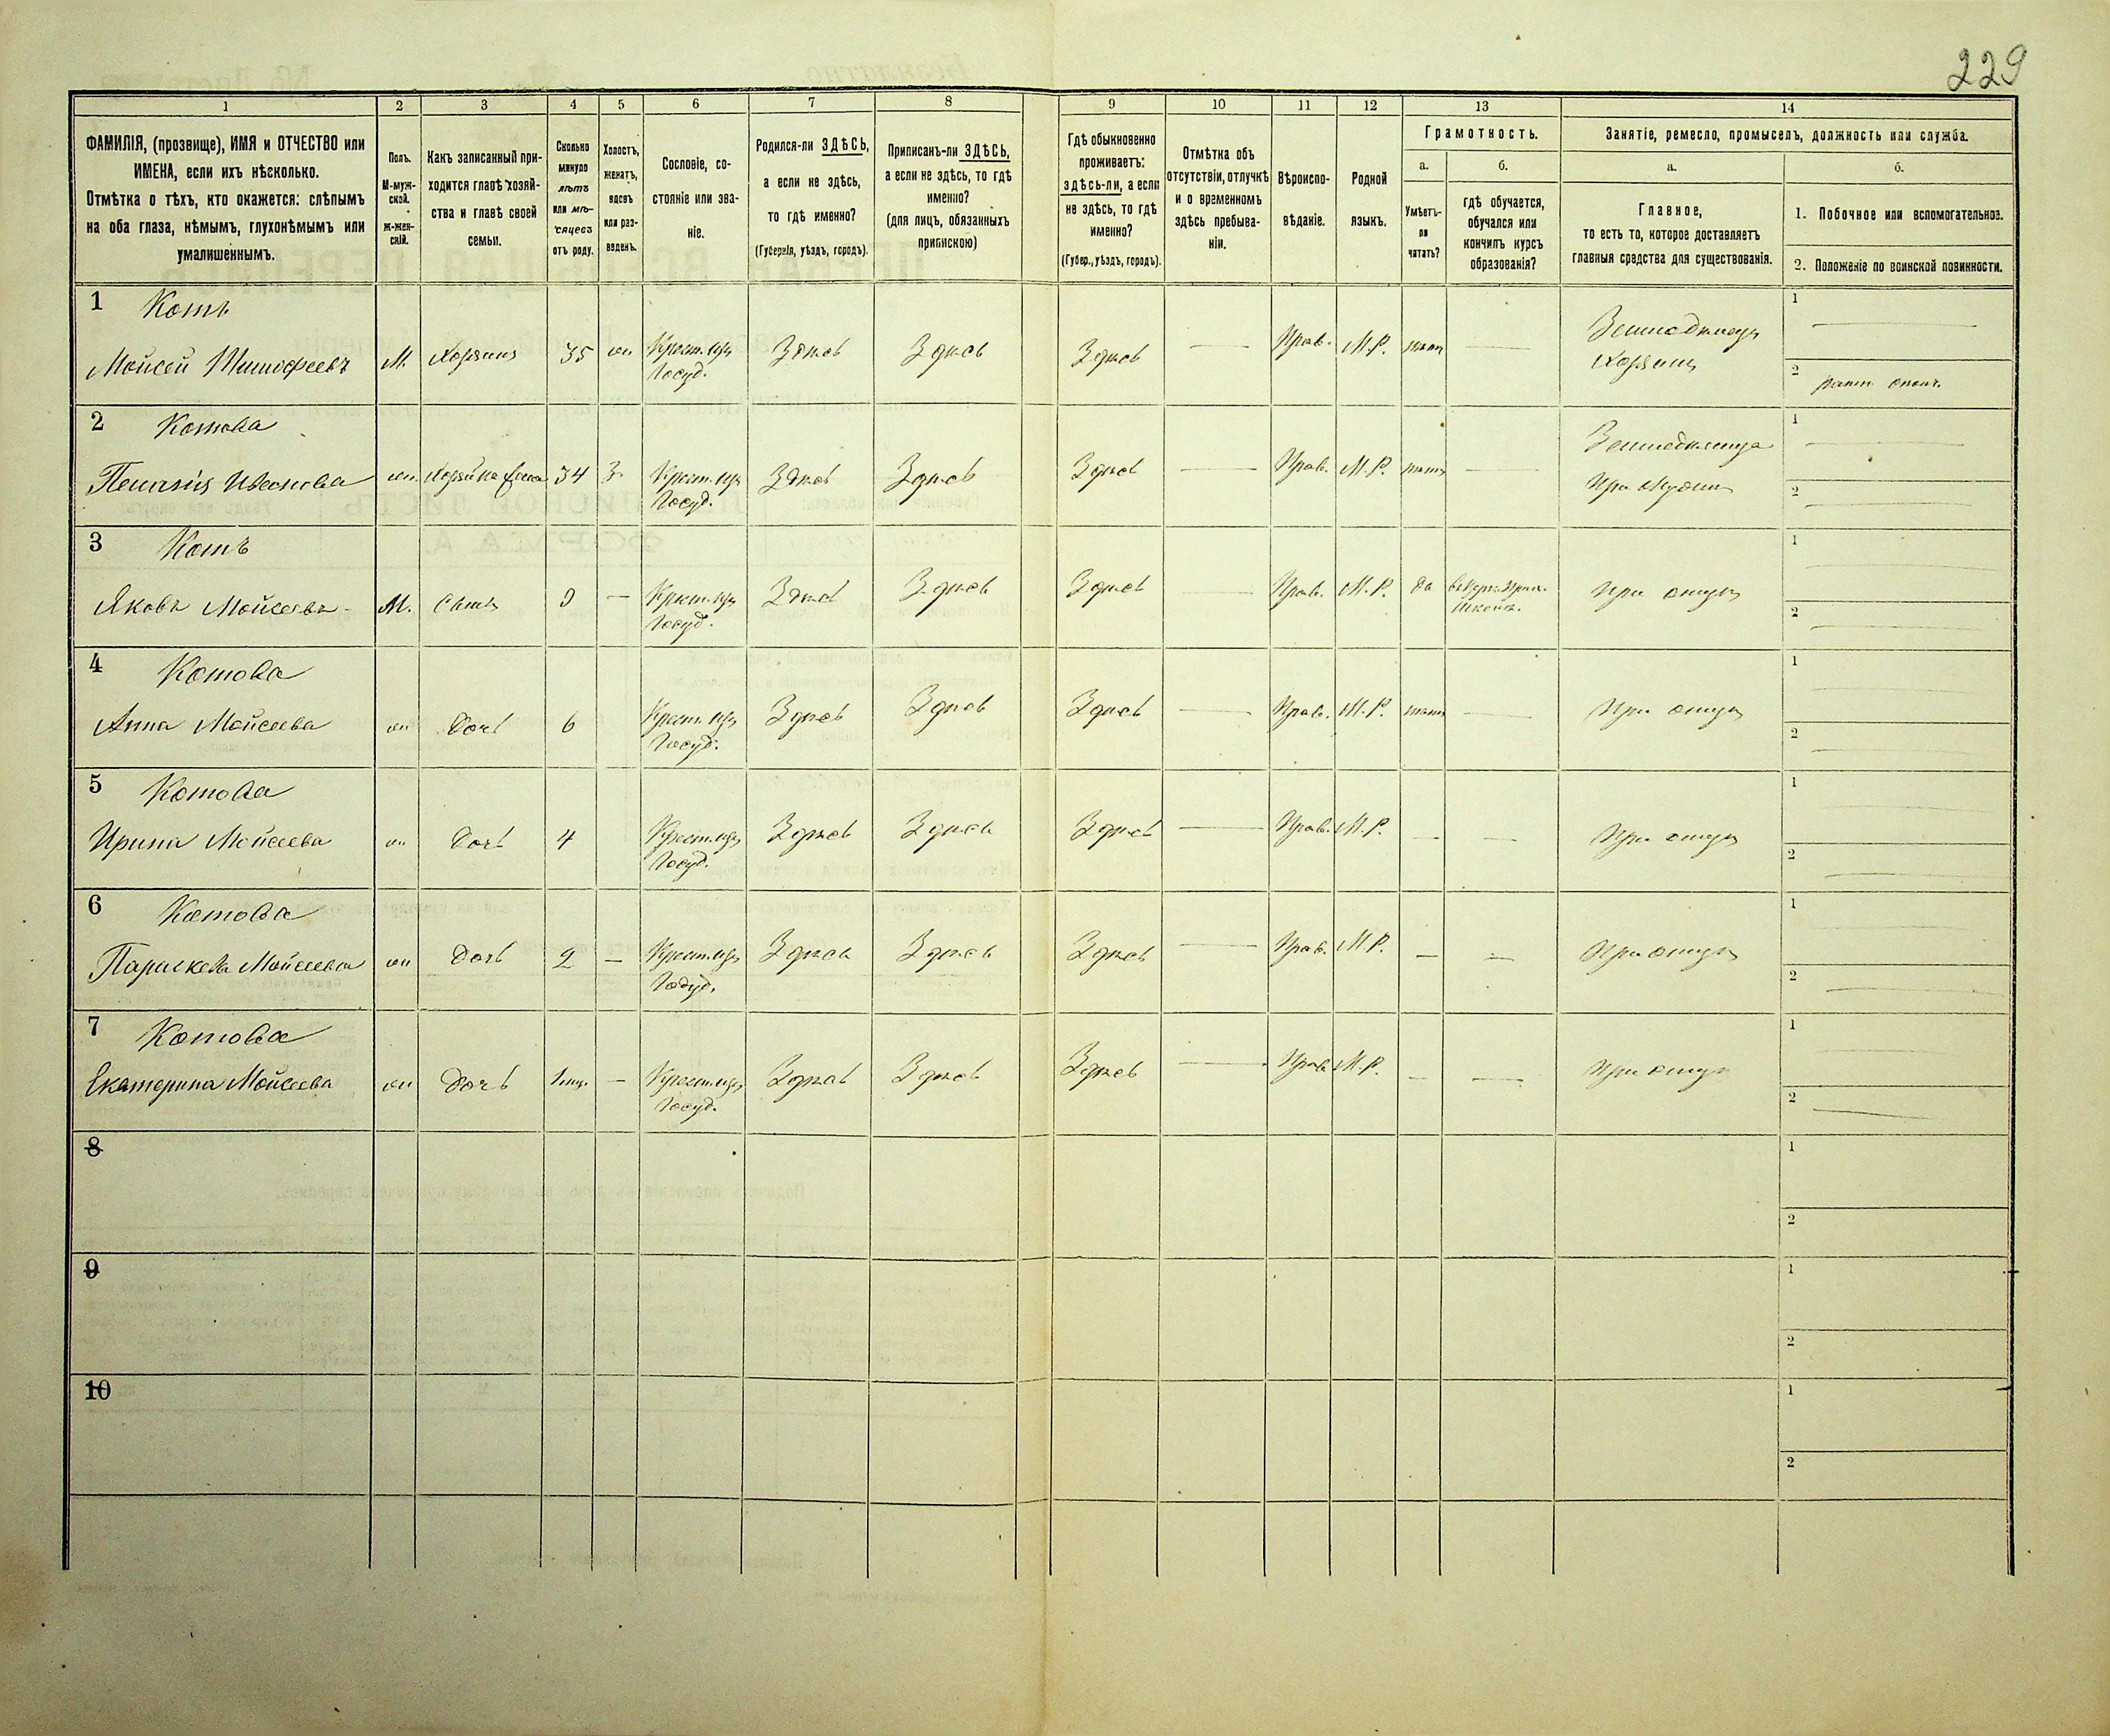 229
1 2 3 4 5 6 7 8 9 10 11 12 13 14
ФАМИЛІЯ, (прозвище), ИМЯ и ОТЧЕСТВО или
ИМЕНА, если ихъ нѣсколько.
Отмѣтка о тѣхъ, кто окажется: слѣпымъ
на оба глаза, нѣмымъ, глухонѣмымъ или
умалишеннымъ.
Полъ.
М-муж-
ской.
Ж-жен-
скій.
Какъ записанный при-
ходится главѣ хозяй-
ства и главѣ своей
семьи.
Сколько
минуло
лѣтъ
или мѣ-
сяцевъ
отъ роду.
Холостъ,
женатъ,
вдовъ
или раз-
веденъ.
Сословіе, со-
стояніе или зва-
ніе.
Родился-ли ЗДѢСЬ,
а если не здѣсь,
то гдѣ именно?
(Губернія, уѣздъ, городъ).
Приписанъ-ли ЗДѢСЬ,
а если не здѣсь, то гдѣ
именно?
(для лицъ, обязанныхъ
припискою)
Гдѣ обыкновенно
проживаетъ:
здѣсь-ли, а если
не здѣсь, то гдѣ
именно?
(Губер., уѣздъ, городъ).
Отмѣтка объ
отсутствіи, отлучкѣ
и о временномъ
здѣсь пребыва-
ніи.
Вѣроиспо-
вѣданіе.
Родной
языкъ.
Грамотность.
а.
Умѣетъ-
ли
читать?
б.
гдѣ обучается,
обучался или
кончилъ курсъ
образованія?
Занятіе, ремесло, промыселъ, должность или служба.
а.
Главное,
то есть то, которое доставляетъ
главныя средства для существованія.
б.
1. Побочное или вспомогательное.
2. Положеніе по воинской повинности.
1 Котъ
Мойсей Тимофеевъ М. Хозяинъ 35 ж Крест. изъ Госуд. Здѣсь Здѣсь Здѣсь — Прав. М.Р. нѣтъ — Земледѣлецъ
Хозяинъ
1
2
2 Котова
Пелагія Иванова ж Хозяйка жена 34 З. Крест. изъ Госуд. Здѣсь Здѣсь Здѣсь — Прав. М.Р. нѣтъ — Земледѣлица
При мужѣ
1
2
3 Котъ
Яковъ Мойсеевъ М. Сынъ 9 — Крест. изъ Госуд. Здѣсь Здѣсь Здѣсь — Прав. М.Р. да При отцѣ
1
2
4 Котова
Анна Мойсеева ж Дочь 6 Крест. изъ Госуд. Здѣсь Здѣсь Здѣсь — Прав. М.Р. нѣтъ — При отцѣ
1
2
5 Котова
Ирина Мойсеева ж Дочь 4 Крест. изъ Госуд. Здѣсь Здѣсь Здѣсь — Прав. М.Р. — — При отцѣ
1
2
6 Котова
Параскева Мойсеева ж Дочь 2 — Крест. изъ Госуд. Здѣсь Здѣсь Здѣсь — Прав. М.Р. — — При отцѣ
1
2
7 Котова
Екатерина Мойсеева ж Дочь — Крест. изъ Госуд. Здѣсь Здѣсь Здѣсь — Прав. М.Р. — — При отцѣ
1
2
8
1
2
9
1
2
10
1
2